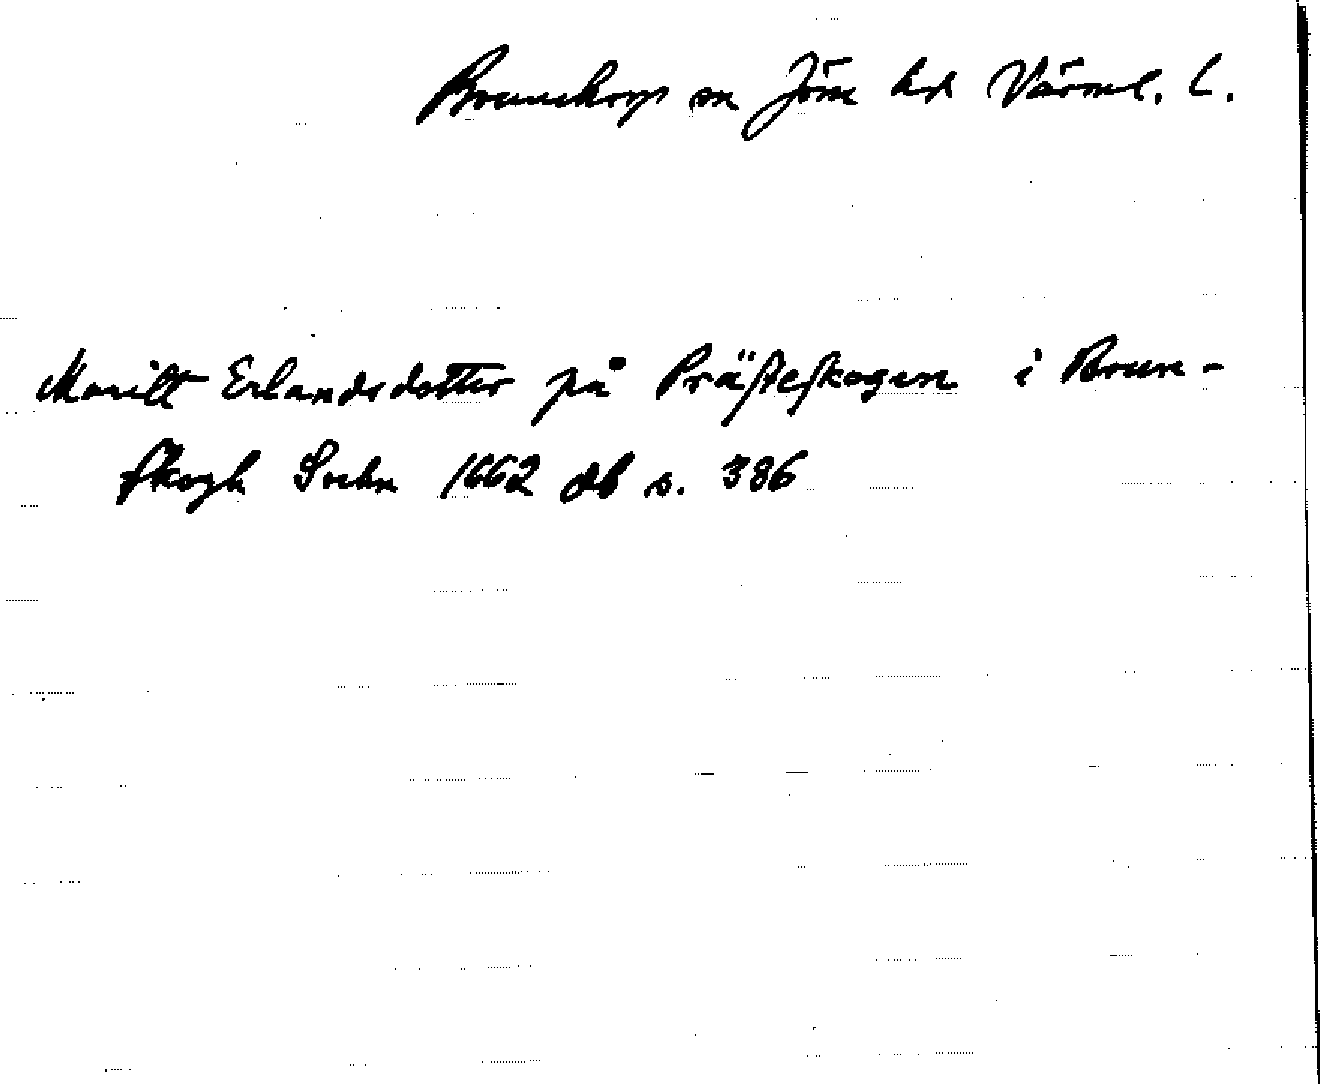 Brunskogs sn Jösse hd Värml. l.
Maritt Erlandsdotter på Prästeskogen i Brun-
skogh Sockn 1662 db s. 386